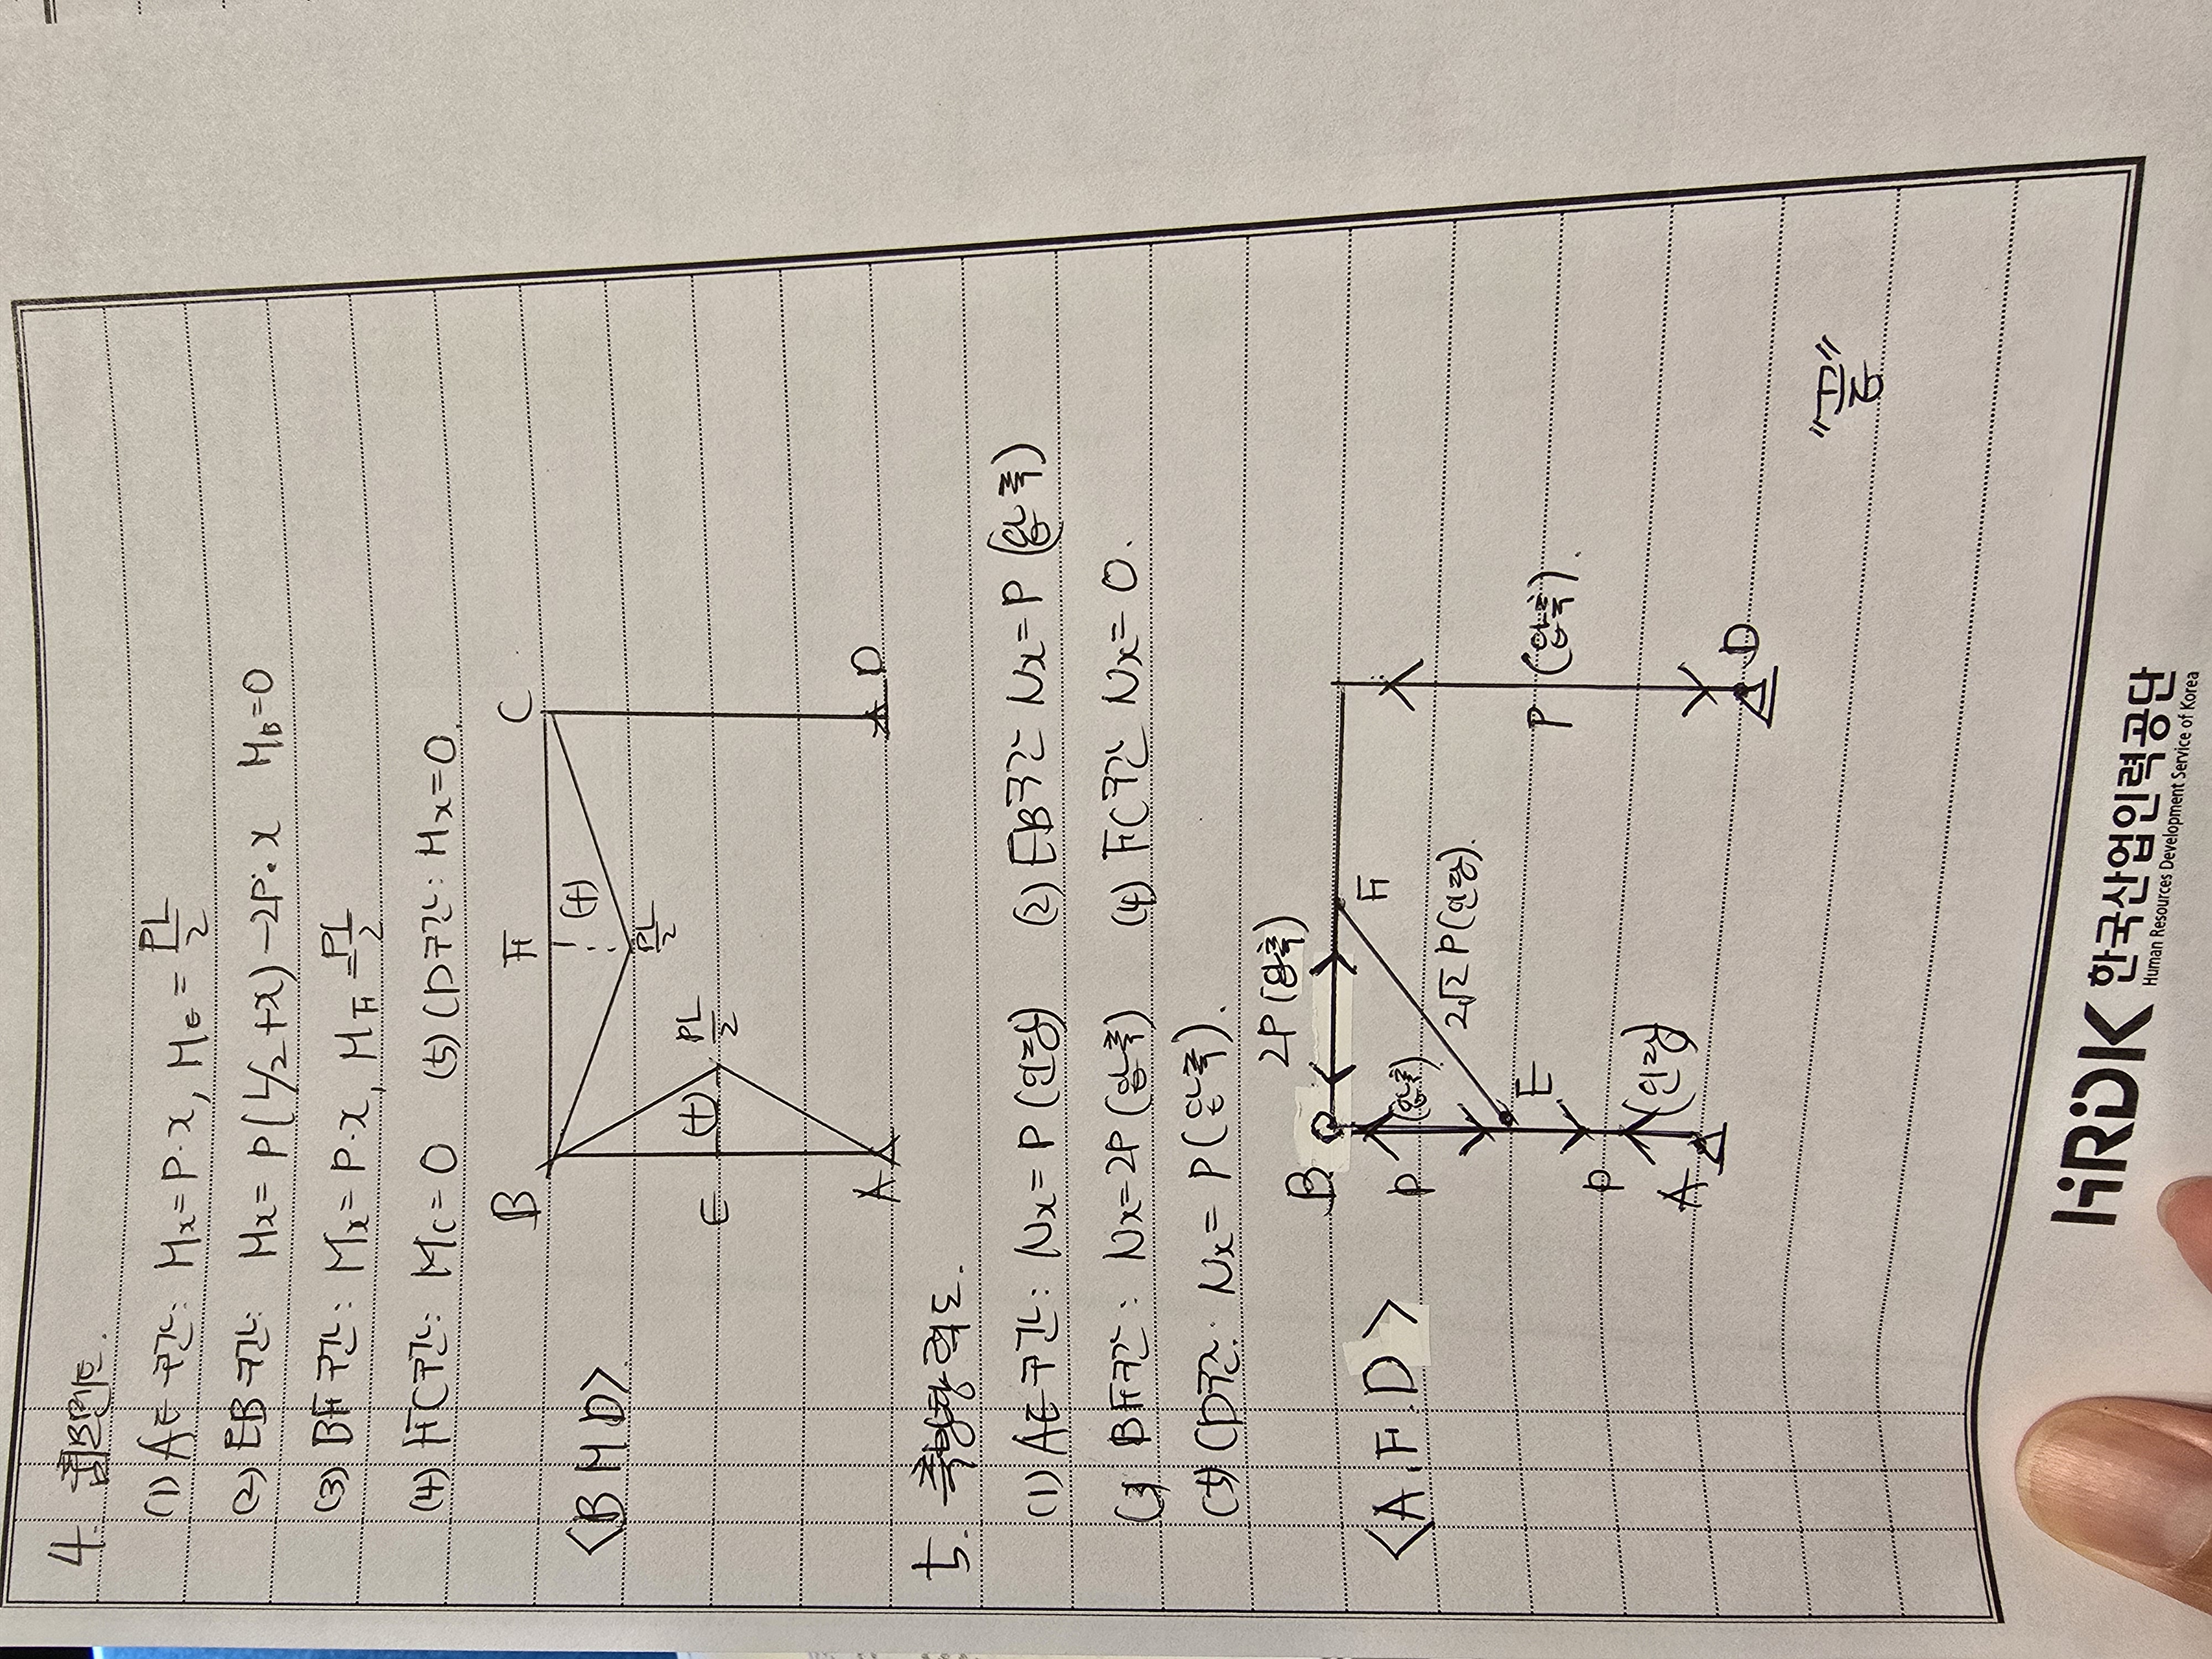 4. 휨모멘트.
(1) AE구간: Mx=P·x, ME = PL/2
(2) EB구간: Mx= P(L/2+x)-2P·x MB=0
(3) BF구간: Mx= P·x, MF=PL/2
(4) FC구간: MC= 0 (5) CD구간: Mx=0.
<BMD>
B F C
(+)
PL/2
E (+) PL/2
A D
5. 축방향력도.
(1) AE구간: Nx= P (인장) (2) EB구간 Nx= P (압축)
(3) BF구간: Nx=2P (압축) (4) FC구간 Nx= 0.
(5) CD구간: Nx= P (압축).
<A.F.D>
2P (압축)
B F
P (압축) 2√2 P (인장).
E P (압축).
P (인장)
A D
"끝"
HRDK 한국산업인력공단
Human Resources Development Service of Korea